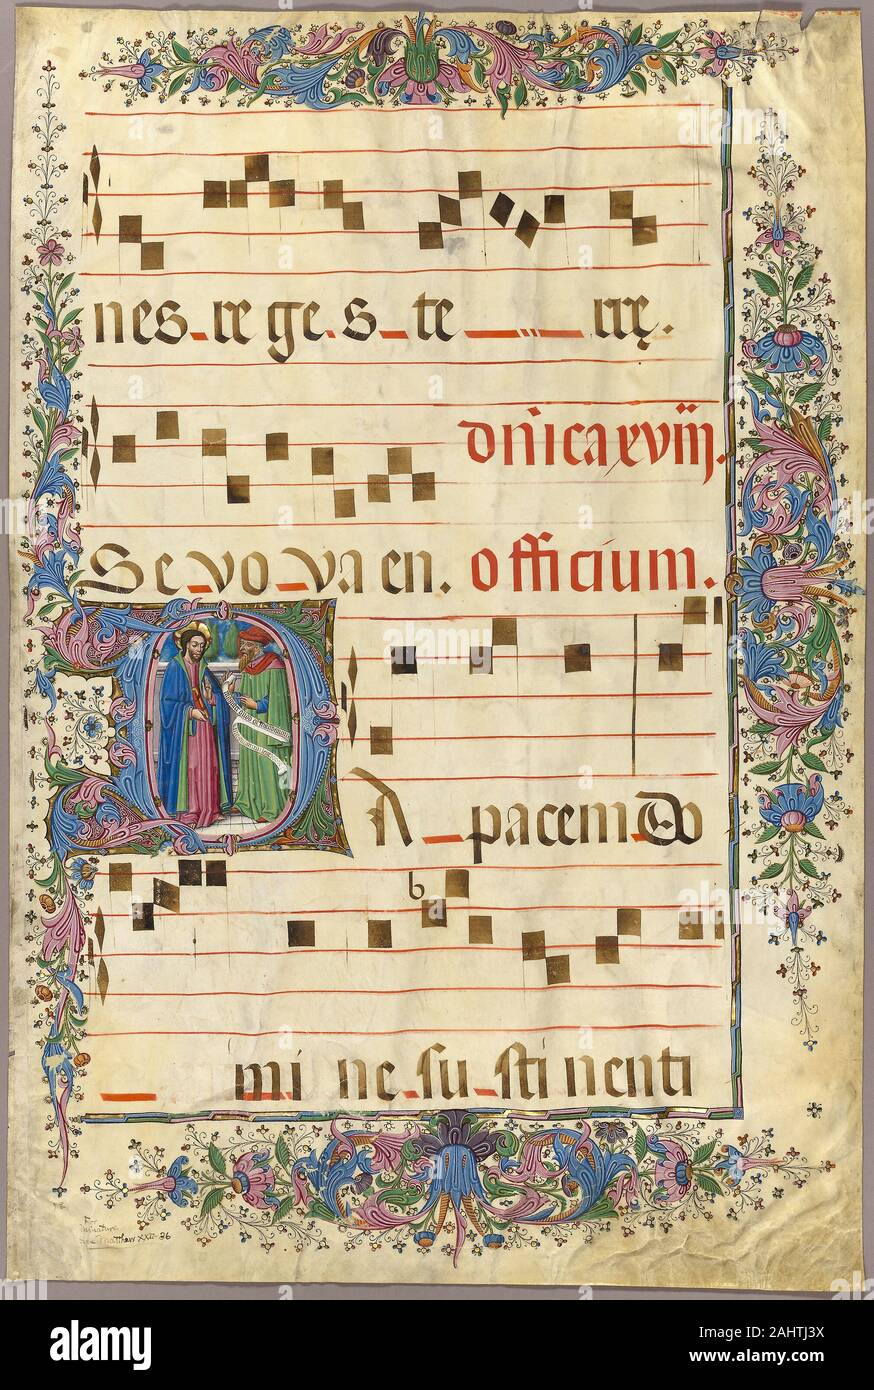 nes re ge s te rre.
dn̄ica xviij.
Se vo va en. officium.
DA pacem Do
b
mi ne su sti nenti
For
Matthew XXII-36
alamy
Image ID: 2AHTJ3X
www.alamy.com